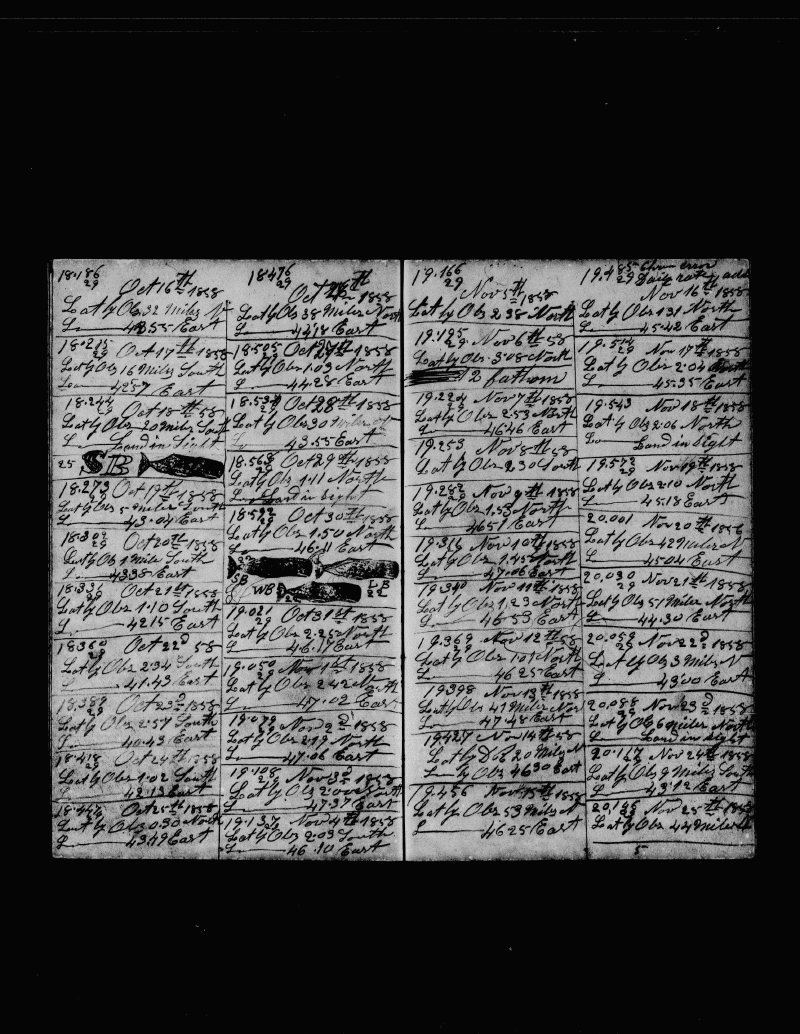 18.186
29
Oct 16th 1858
Lat by Obs 32 Miles N
L 43.55 East
18.215
29 Oct 17th 1858
Lat by Obs 16 Miles South
Lo 42.57 East
18.244
29 Oct 18th 58
Lat by Obs 20 Miles South
L Land in Sight
25 SB
18.273 Oct 19th 1858
29
Lat by Obs 5 Miles South
L 43.04 East
18.302 Oct 20th 1858
29
Lat by Obs 1 Mile South
L 43.38 East
18.331 Oct 21st 1858
29
Lat by Obs 1.10 South
L 42.15 East
18.360 Oct 22d 58
29
Lat by Obs 2.34 South
L 41.43 East
18.389 Oct 23d 1858
29
Lat by Obs 2.57 South
L 40.43 East
18.418 Oct 24th 1858
29
Lat by Obs 1.02 South
L 42.13 East
18.447 Oct 25th 1858
29
Lat by Obs 0.30 North
L 43.49 East
18.476
29
Oct 1858
Lat by Obs 38 Miles North
L 44.18 East
18.505 Oct 27th 1858
29
Lat by Obs 1.03 North
L 44.28 East
18.534 Oct 28th 1858
29
Lat by Obs 30 Miles
L 43.55 East
18.563 Oct 29th 1858
29
Lat by Obs 1.11 North
L Land in Sight
18.592 Oct 30th 1858
29
Lat by Obs 1.50 North
L 46.11 East
SB WB LB
22
19.021 Oct 31st 1858
29
Lat by Obs 2.25 North
L 46.17 East
19.050 Nov 1st 1858
29
Lat by Obs 2.42 North
L 47.02 East
19.079 Nov 2d 1858
29
Lat by Obs 2.19 North
L 47.06 East
19.108 Nov 3d 1858
29
Lat by Obs 2.00 South
L 47.37 East
19.137 Nov 4th 1858
29
Lat by Obs 2.03 South
L 46.10 East
19.166
29
Nov 5th 1858
Lat by Obs 2.38 North
19.195
29 Nov 6th 58
Lat by Obs 3.08 North
12 fathom
19.224 Nov 7th 1858
29
Lat by Obs 2.53 North
L 46.46 East
19.253 Nov 8th 58
Lat by Obs 2.30 South
19.282 Nov 9th 1858
29
Lat by Obs 1.53 North
L 46.51 East
19.311 Nov 10th 1858
29
Lat by Obs 1.45 North
L 47.06 East
19.340 Nov 11th 1858
29
Lat by Obs 1.23 North
L 46.53 East
19.369 Nov 12th 58
29
Lat by Obs 1.01 North
L 46.25 East
19.398 Nov 13th 1858
Lat by Obs 41 Miles Nor
L 47.48 East
19.427 Nov 14th 58
Lat by D R 20 Miles N
L by Obs 46.30 East
19.456 Nov 15th 1858
Lat by Obs 53 Miles N
L 46.25 East
19.485 Chron error
29 Daily rate add
Nov 16th 1858
Lat by Obs 1.31 North
L 45.42 East
19.514
29 Nov 17th 1858
Lat by Obs 2.04 North
L 45.35 East
19.543
29 Nov 18th 1858
Lat by Obs 2.06 North
Lo Land in Sight
19.572 Nov 19th 1858
29
Lat by Obs 2.10 North
L 45.18 East
20.001 Nov 20th 1858
29
Lat by Obs 42 Miles N
L 45.04 East
20.030
29 Nov 21st 1858
Lat by Obs 51 Miles North
L 44.30 East
20.059 Nov 22d
29
Lat by Obs 3 Miles N
L 43.00 East
20.088 Nov 23d
29
Lat by Obs 6 Miles North
L Land in Sight
20.117 Nov 24th 1858
29
Lat by Obs 9 Miles South
L 43.12 East
20.146 Nov 25th 1858
29
Lat by Obs 44 Miles
L
5